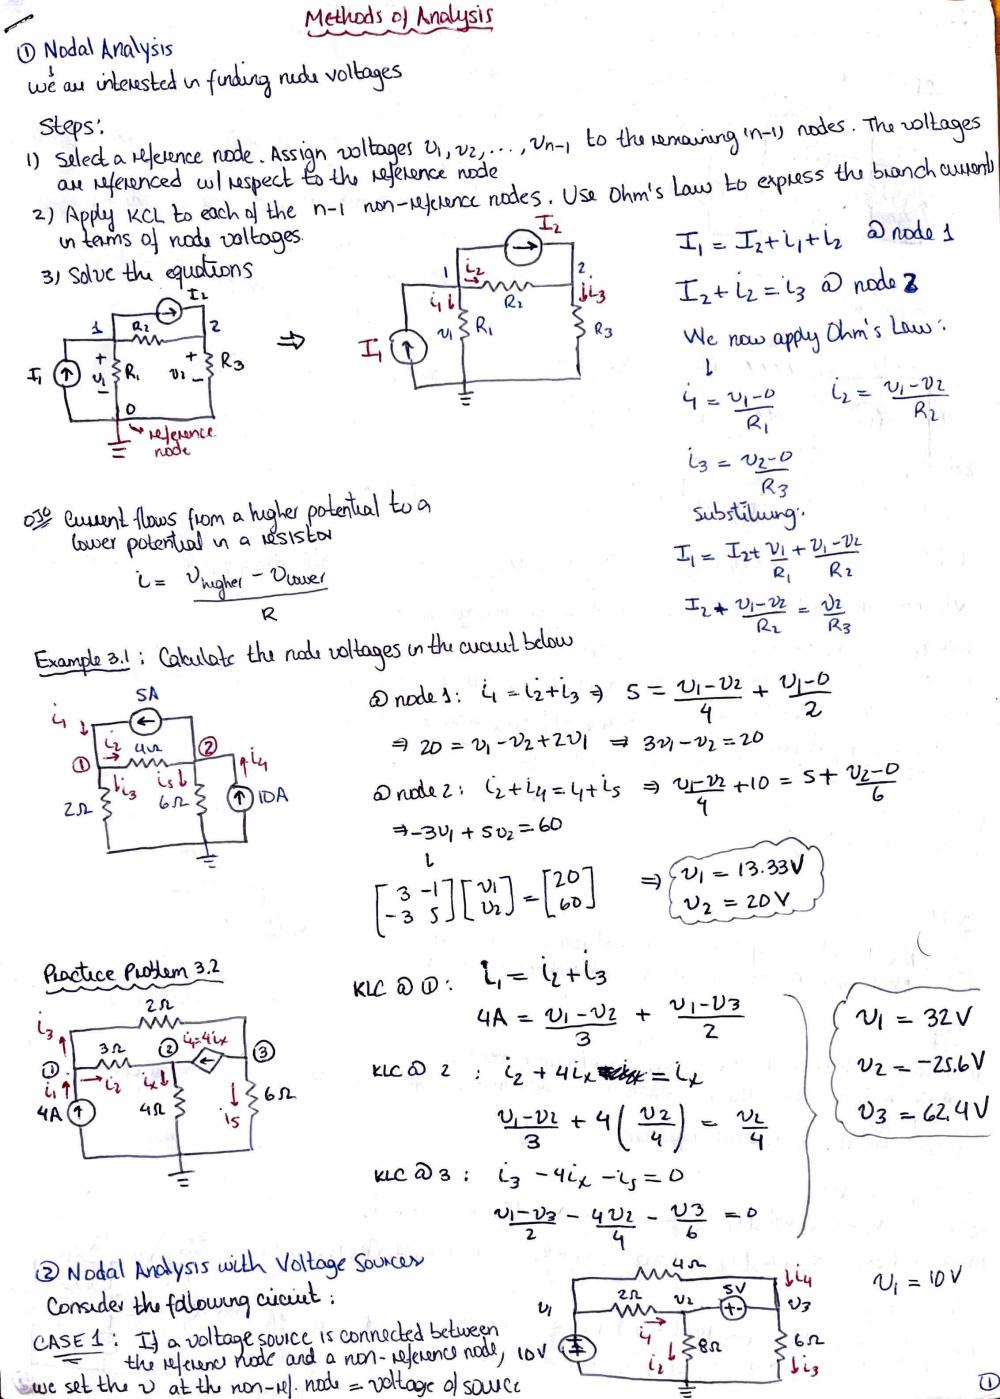 Methods of Analysis
① Nodal Analysis
we are interested in finding node voltages
Steps:
1) Select a reference node. Assign voltages v1, v2, ..., vn-1 to the remaining (n-1) nodes. The voltages
are referenced w/ respect to the reference node
2) Apply KCL to each of the n-1 non-reference nodes. Use Ohm's Law to express the branch current
in terms of node voltages.
3) Solve the equations
I2
1 R2 2
I1 + v1 - R1 + v2 - R3
0
reference
node
⇒
I2
1 i2 2
i1 R2 i3
I1 v1 R1 R3
I1 = I2 + i1 + i2 @ node 1
I2 + i2 = i3 @ node 2
We now apply Ohm's Law:
↓
i1 = (v1-0)/R1 i2 = (v1-v2)/R2
i3 = (v2-0)/R3
substituing:
I1 = I2 + v1/R1 + (v1-v2)/R2
I2 + (v1-v2)/R2 = v2/R3
Current flows from a higher potential to a
lower potential in a resistor
i = (vhigher - vlower)/R
Example 3.1: Calculate the node voltages in the circuit below
5A
i1
i2 4Ω ② i4
① i3 i5
2Ω 6Ω 10A
@ node 1: i1 = i2 + i3 ⇒ 5 = (v1-v2)/4 + (v1-0)/2
⇒ 20 = v1 - v2 + 2v1 ⇒ 3v1 - v2 = 20
@ node 2: i2 + i4 = i1 + i5 ⇒ (v1-v2)/4 + 10 = 5 + (v2-0)/6
⇒ -3v1 + 5v2 = 60
↓
[3 -1] [v1] = [20]
[-3 5] [v2] [60]
⇒ v1 = 13.33V
v2 = 20V
Practice Problem 3.2
2Ω
i3
3Ω ② i4=4ix ③
① i2 ix
i1 4Ω i5 6Ω
4A
KLC @ ①: i1 = i2 + i3
4A = (v1-v2)/3 + (v1-v3)/2
KLC @ 2: i2 + 4ix = ix
(v1-v2)/3 + 4(v2/4) = v2/4
KLC @ 3: i3 - 4ix - i5 = 0
(v1-v3)/2 - 4v2/4 - v3/6 = 0
v1 = 32V
v2 = -25.6V
v3 = 62.4V
② Nodal Analysis with Voltage Sources
Consider the following circuit:
CASE 1: If a voltage source is connected between
the reference node and a non-reference node,
we set the v at the non-ref. node = voltage of source
4Ω
i4
v1 2Ω v2 5V v3
+ -
i1
10V i2 8Ω 6Ω
i3
v1 = 10V
①